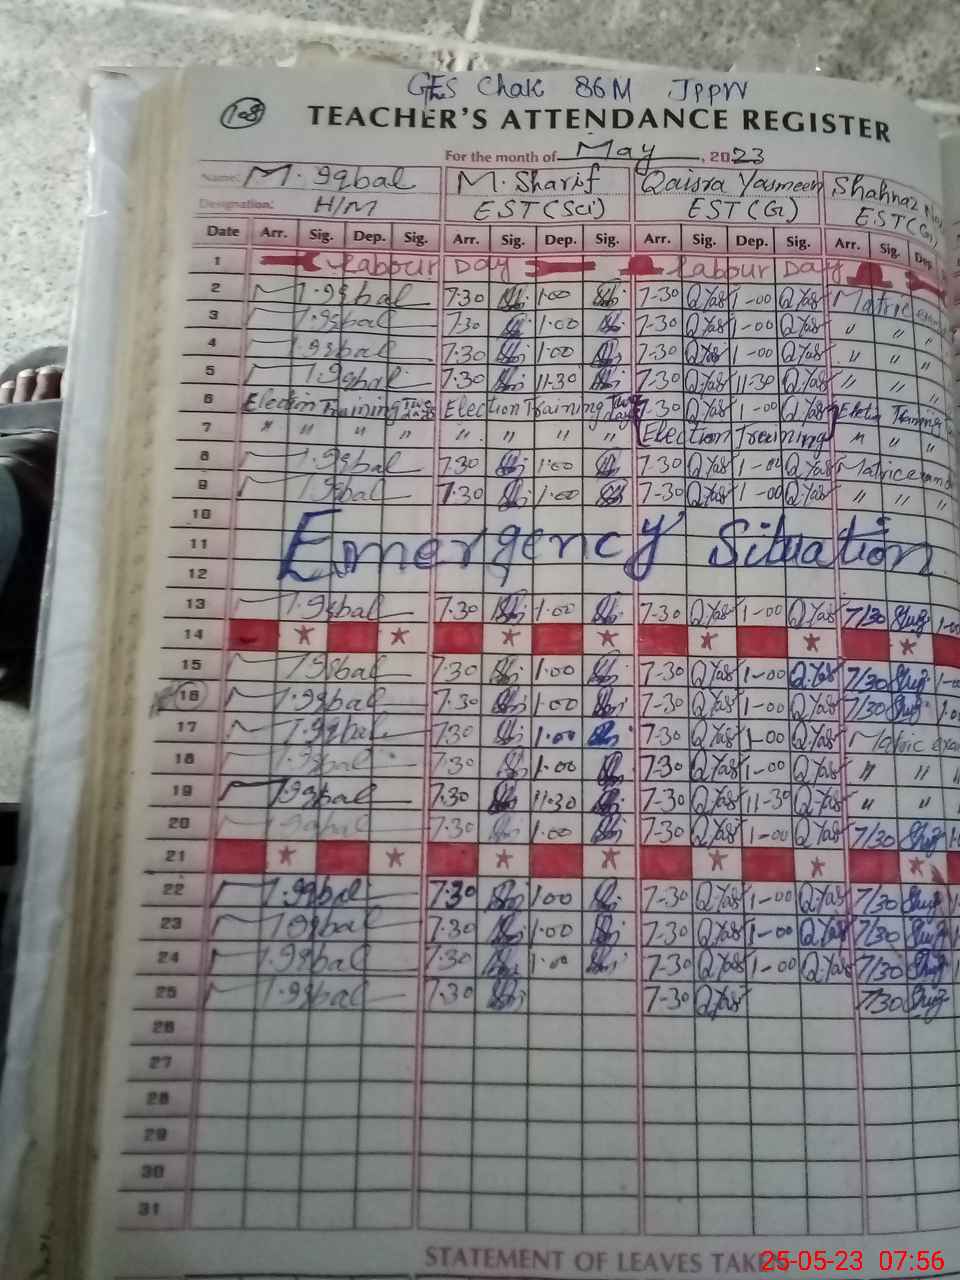 GES Chak 86M JPPW
108
TEACHER'S ATTENDANCE REGISTER
For the month of May, 2023
Name: M. Iqbal M. Sharif Qaisra Yasmeen Shahnaz
Designation: H/M EST (Sci) EST (G) EST (G)
Date Arr. Sig. Dep. Sig. Arr. Sig. Dep. Sig. Arr. Sig. Dep. Sig. Arr. Sig. Dep.
1 Labour Day Labour Day
2 M. Iqbal 7.30 1.00 7-30 Q Yas 1-00 Q Yas Matric exam
3 M. Iqbal 7.30 1.00 7-30 Q Yas 1-00 Q Yas " "
4 M. Iqbal 7.30 1.00 7-30 Q Yas 1-00 Q Yas " "
5 M. Iqbal 7.30 11.30 7-30 Q Yas 11-30 Q Yas " "
6 Election Training Two days Election Training Two days 7-30 Q Yas 1-00 Q Yas Election Training
7 " " " " " " " " Election Training " " "
8 M. Iqbal 7.30 1.00 7-30 Q Yas 1-00 Q Yas Matric exam
9 M. Iqbal 7.30 1.00 7-30 Q Yas 1-00 Q Yas " " "
10
11 Emergency Situation
12
13 M. Iqbal 7.30 1.00 7-30 Q Yas 1-00 Q Yas 7/30 1-00
14
15 M. Iqbal 7.30 1.00 7-30 Q Yas 1-00 Q Yas 7/30 1-00
16 M. Iqbal 7.30 1.00 7-30 Q Yas 1-00 Q Yas 7/30
17 M. Iqbal 7.30 1.00 7-30 Q Yas 1-00 Q Yas Matric exam
18 M. Iqbal 7.30 1.00 7-30 Q Yas 1-00 Q Yas " " "
19 M. Iqbal 7.30 11.30 7-30 Q Yas 11-30 Q Yas " " "
20 M. Iqbal 7.30 1.00 7-30 Q Yas 1-00 Q Yas 7/30
21
22 M. Iqbal 7.30 1.00 7-30 Q Yas 1-00 Q Yas 7/30
23 M. Iqbal 7.30 1.00 7-30 Q Yas 1-00 Q Yas 7/30
24 M. Iqbal 7.30 1.00 7-30 Q Yas 1-00 Q Yas 7/30
25 M. Iqbal 7.30 7-30 Q Yas 7/30
26
27
28
29
30
31
STATEMENT OF LEAVES TAKEN
25-05-23 07:56